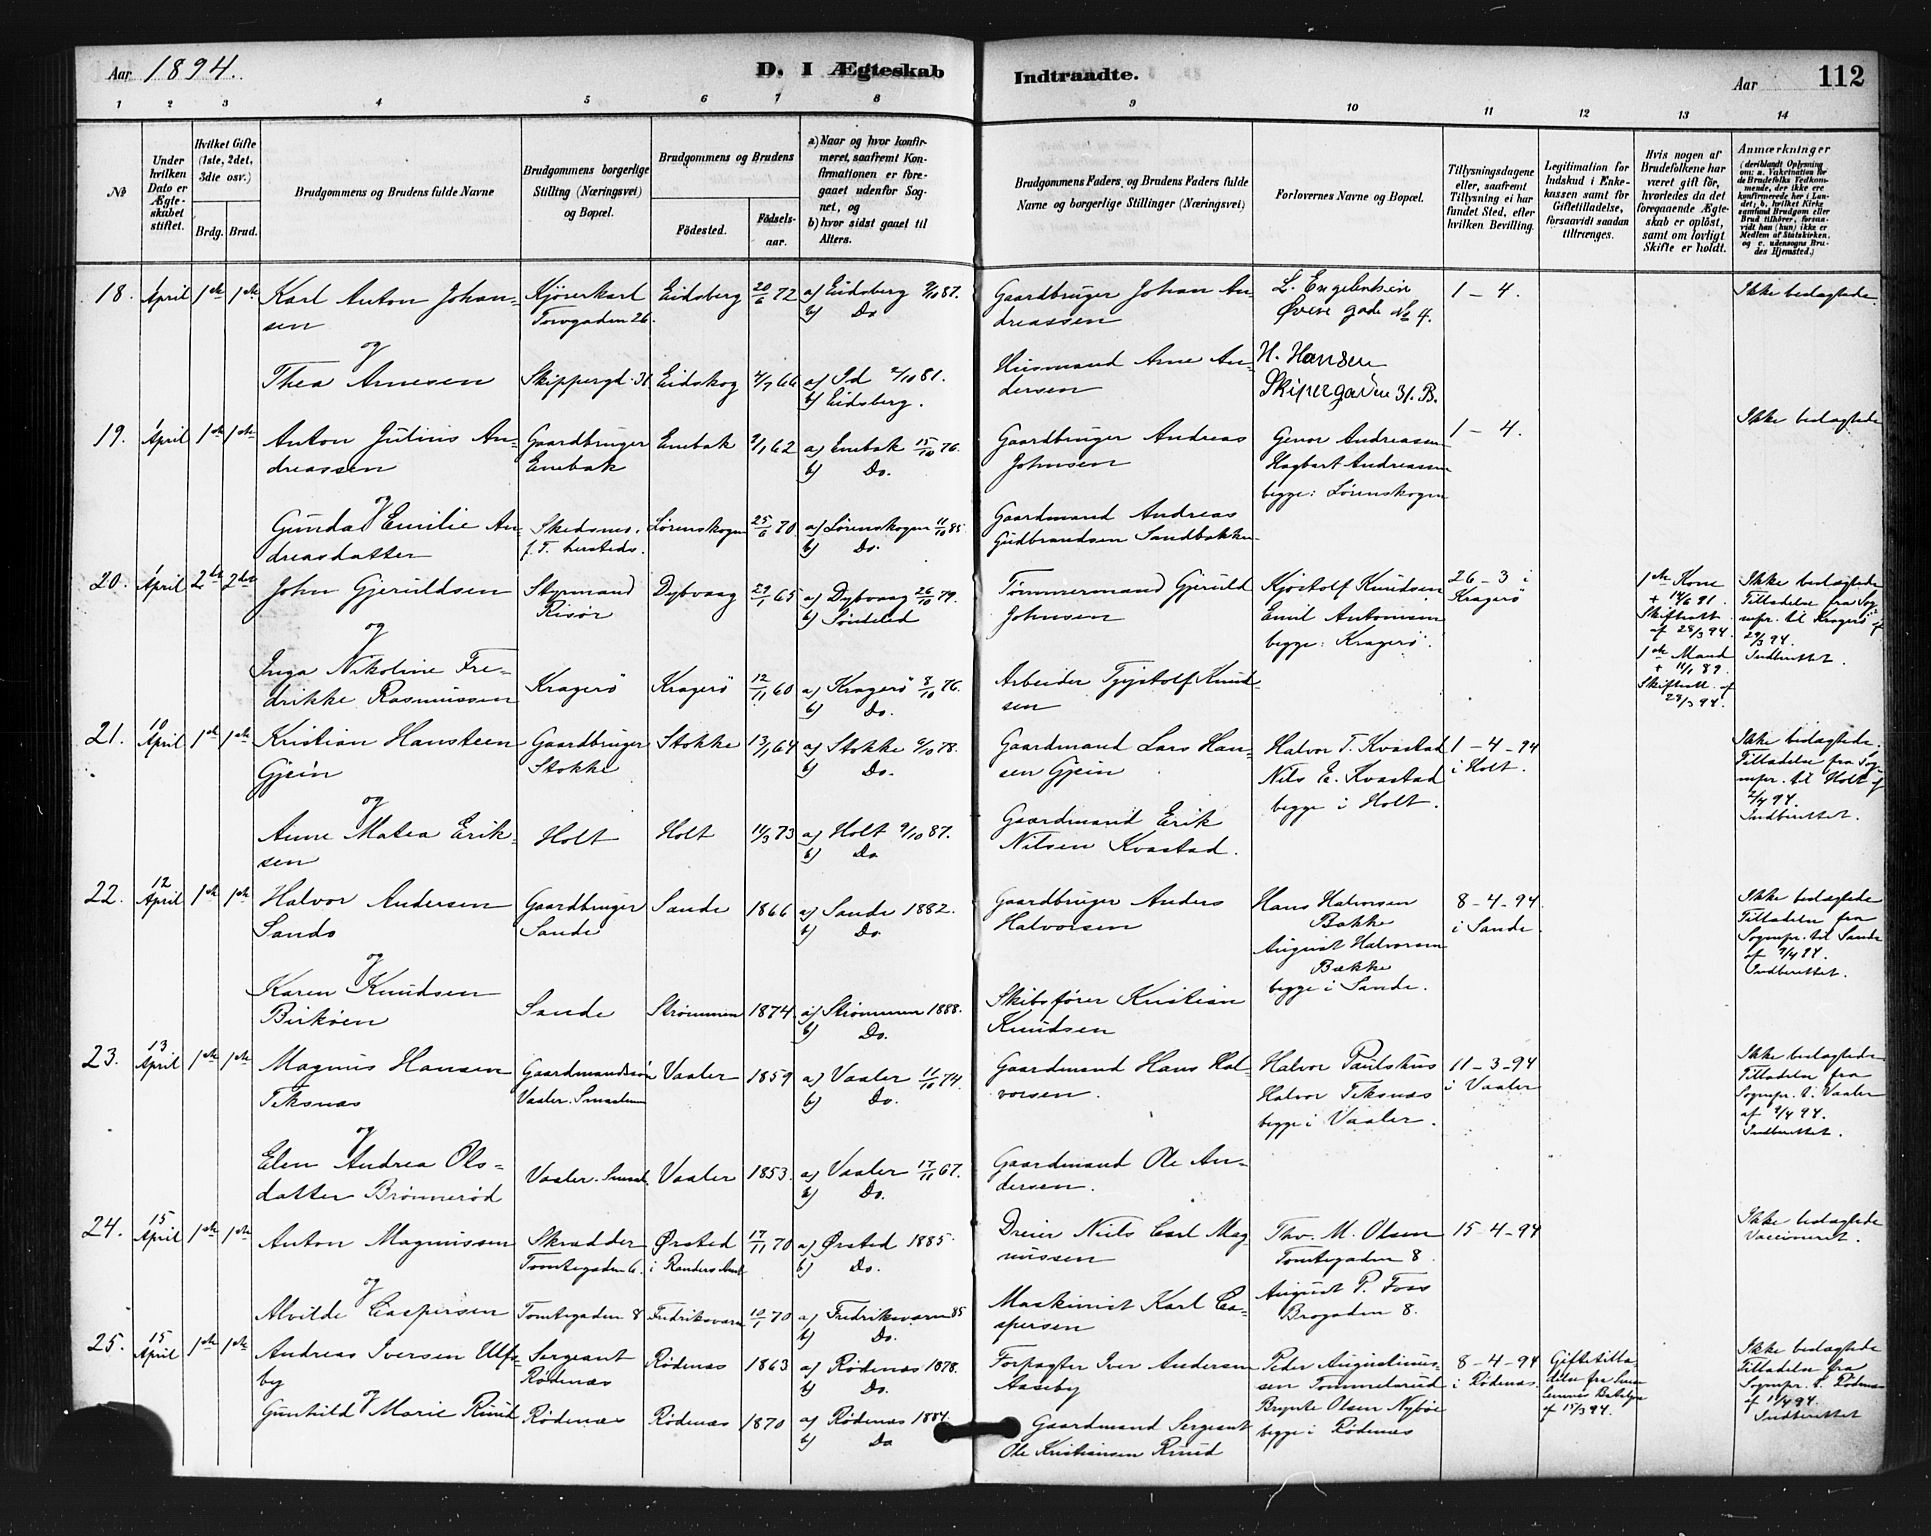 Aar 1894. D. I Ægteskab Indtraadte. Aar 112
1 2 3 4 5 6 7 8 9 10 11 12 13 14
No
Under hvilken Dato er Ægteskabet stiftet.
Hvilket Gifte (1ste, 2det, 3die osv.)
Brdg. Brud.
Brudgommens og Brudens fulde Navne
Brudgommens borgerlige Stilling (Næringsvei) og Bopæl.
Brudgommens og Brudens
Fødested. Fødselsaar.
a) Naar og hvor konfirmeret, saafremt Konfirmationen er foregaaet udenfor Sognet, og
b) hvor sidst gaaet til Alters.
Brudgommens Faders, og Brudens Faders fulde Navne og borgerlige Stillinger (Næringsvei)
Forlovernes Navne og Bopæl.
Tillysningsdagene eller, saafremt Tillysning ei har fundet Sted, efter hvilken Bevilling.
Legitimation for Indskud i Enkekassen samt for Giftetilladelse, forsaavidt saadan tiltrænges.
Hvis nogen af Brudefolkene har været gift før, hvorledes da det foregaaende Ægteskab er opløst, samt om lovligt Skifte er holdt.
Anmærkninger
(deriblandt Oplysning om: a. Vakcination for de Brudefolks Vedkommende, der ikke ere konfirmerede her i Landet; b, hvilket Kirkesamfund Brudgom eller Brud tilhører, forsaavidt han (hun) ikke er Medlem af Statskirken, og c. udensogns Brudes Hjemsted.)
18. April 1ste 1ste Karl Anton Johan- Kjørerkarl Eidsberg 20/6 72 a) Eidsberg 9/10 87. Gaardbruger Johan An- L. Engebretsen 1 - 4. Ikke beslægtede.
sen Torvgaden 26. b) Do dreassen Øvere gade No 4.
og
Thea Arnesen Skippergd. 31 Eidskog 4/7 66 a) Id 2/10 81. Husmand Arne An- H. Hansen
b) Eidsberg. dersen Skipergaden 31. B.
19. April 1ste 1ste Anton Julius An- Gaardbruger Enebak 2/1 62 a) Enebak 15/10 76. Gaardbruger Andreas Genor Andreassen 1 - 4. Ikke beslægtede
dreassen Enebak b) Do. Johnsen Hagbart Andreassen
og begge: Lørenskogen
Gunda Emilie An- Skedsmo. Lørenskogen 25/6 70 a) Lørenskogen 11/10 85. Gaardmand Andreas
dreasdatter f. T. hersteds. b) Do. Gudbrandsen Sandbakken
20. April 2det 2det John Gjeruldsen Styrmand Dybvaag 29/1 65 a) Dybvaag 26/10 79. Tømmermand Gjeruld Kjøstolf Knudsen 26 - 3 i 1ste Kone Ikke beslægtede
Risør b) Søndeled Johnsen Emil Antonsen Kragerø + 14/6 91. Tilladelse fra Sog-
og begge: Kragerø. Skifteatt. nepr. til Kragerø af
af 28/3 94. 29/3 94.
1ste Mand Indberettet.
Inga Nikoline Fre- Kragerø Kragerø 12/11 60 a) Kragerø 8/10 76. Arbeider Kjøstolf Knud- + 11/1 89.
drikke Rasmussen b) Do. sen Skifteatt. af
28/3 94.
21. 10 April 1ste 1ste Kristian Hansteen Gaardbruger Stokke 13/1 64 a) Stokke 6/10 78. Gaardmand Lars Han- Halvor T. Kvastad 1 - 4 - 94 Ikke beslægtede.
Gjein Stokke b) Do. sen Gjein Nils E. Kvastad i Holt. Tilladelse fra Sog-
og begge i Holt. nepr. til Holt af
2/4 94.
Anne Matea Erik- Holt Holt 14/3 73 a) Holt 9/10 87. Gaardmand Erik Indberettet.
sen b) Do Nilsen Kvastad.
22. 12 April 1ste 1ste Halvor Andersen Gaardbruger Sande 1866 a) Sande 1882. Gaardbruger Anders Hans Halvorsen 8 - 4 - 94 Ikke beslægtede
Sando Sande b) Do. Halvorsen Bakke i Sande. Tilladelse fra
og August Halvorsen Sognepr. til Sande
Bakke af 9/4 94.
Karen Knudsen Sande Strømmen 1874 a) Strømmen 1888. Skibsfører Kristian begge i Sande. Indberettet.
Birkøen b) Do. Knudsen
23. 13 April 1ste 1ste Magnus Hansen Gaardmandssøn Vaaler 1859 a) Vaaler 11/10 74. Gaardmand Hans Hal- Halvor Paulshus 11 - 3 - 94 Ikke beslægtede
Teksnæs Vaaler. Smaalenene b) Do. vorsen. Halvor Teksnæs i Vaaler Tilladelse fra
og begge i Vaaler. Sognepr. t. Vaaler
af 9/4 94.
Elen Andrea Ols- Vaaler. Smaal. Vaaler 1853 a) Vaaler 17/11 67. Gaardmand Ole An- Indberettet.
datter Brønnerød b) Do. dersen.
24. 15 April 1ste 1ste Anton Magnussen Skrædder Ørsted 17/11 70 a) Ørsted 1885. Dreier Niels Carl Mag- Thv. M. Olsen 15 - 4 - 94 Ikke beslægtede
Tomtegaden 6. i Randers Amt b) Do. nussen Tomtegaden 8. Vaccineret.
og
Alvilde Caspersen Tomtegaden 8 Fredriksværn 10/1 70 a) Fredriksværn 85 Maskinist Karl Ca- August P. Foss
b) Do. spersen Brogaden 8.
25. 15 April 1ste 1ste Andreas Iversen Ulfs- Sergeant Rødenæs 1863 a) Rødenæs 1878. Forpagter Iver Andersen Peder Augustinus- 8 - 4 - 94 Giftetilla- Ikke beslægtede
by Rødenæs b) Do. Aaseby sen Tommelsrud i Rødenæs. delse fra Smaa- Tilladelse fra
og lenenes Bataljon Sognepr. t. Rødenæs
Gunhild Marie Ruud Rødenæs Rødenæs 1870 a) Rødenæs 1884. Gaardmand Sergeant Brynte Olsen Nybøe af 15/3 94. af 11/4 94.
b) Do Ole Kristiansen Ruud begge i Rødenæs Indberettet